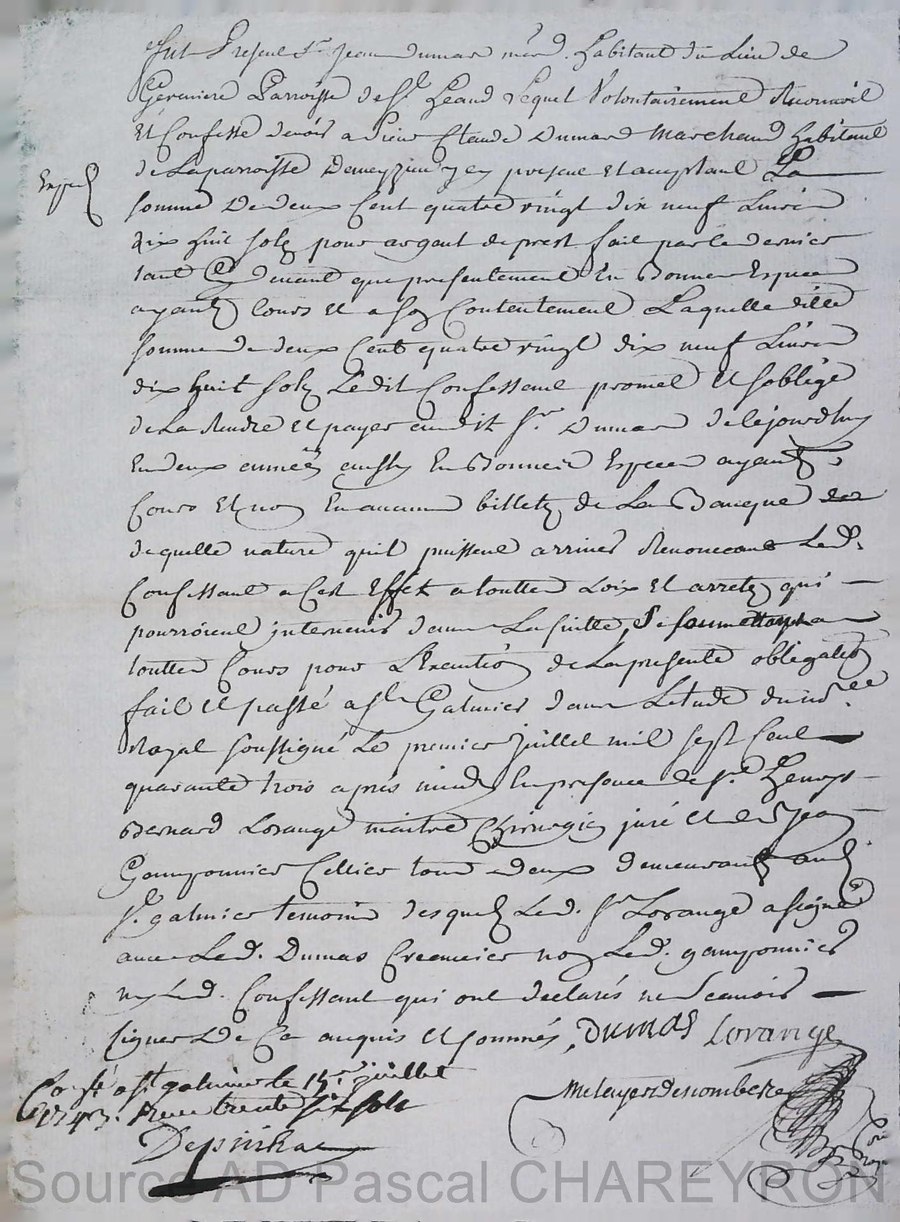 fut Present Sr. Jean Dumas mard. habitant du Lieu de
Parroisse de St. Lequel Volontairement
Et Confesse devoir a Sieur Claude Dumas Marchand habitant
de La parroisse Demeyzieu y present Et acceptant La
somme De deux Cent quatre vingt dix neuf Livres
dix huit solz pour argent de prest fait par le dernier
tant Cy devant que presentement En Bonnes Especes
ayantz Cours Et a son Contentement Laquelle ditte
somme de deux Cent quatre vingt dix neuf Livres
dix huit solz Ledit Confessant promet Et s'oblige
de La Rendre Et payer audit Sr. Dumas de cejourdhuy
En deux années aussy En Bonnes Especes ayantz
Cours Et non En aucuns billetz de La Bancque
de quelle nature quil puissent arriver Renoncant Led.
Confessant a Cet Effet a touttes Loix Et arretz qui
pourroient intervenir dans La suitte, Se soumettant a
touttes Cours pour L'Execution de La presente obligation
fait Et passé a St. Galmier dans L'etude du nore.
Royal soussigné Le premier juillet mil sept Cent
quarante trois après midy En presence de Sr.
Bernard Lorange maitre Chirurgien juré Et de Jean
Gamponnier Cellier tous deux demeurant aud.
St. galmier temoins desquels Led. Sr. Lorange a signé
avec Led. Dumas Creancier non Led. gamponnier
ny Led. Confessant qui ont declarés ne Scavoir
signer De Ce enquis Et sommés, DUMAS Lorange
Conllé. a St. galmier le 15e. juillet
1743. Recu trente six sols